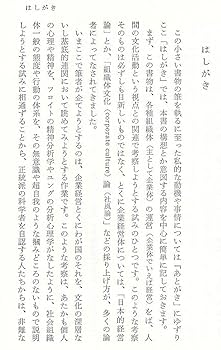 はしがき
はしがき
この小さい書物の筆を執るに至った私的な動機や事情については「あとがき」にゆずり
ここ「はしがき」では、本書の構想とか意図する内容を中心に簡単に記しておきます。
まず、この書物は、各種組織体(主として企業体)の運営(企業体でいえば経営)を、人
間の文化活動という視点との関連で考察しようとする試みのひとつです。このような考察
そのものは必ずしも目新しいものではなく、とくに企業経営体については、「日本的経営
論」とか、「組織体文化(corporate culture)論(社風論)」などの採り上げ方が、多くの論
者によってなされてきました。
いまここで筆者が企てようとするのは、企業経営とくにわが国のそれを、文化の深層な
いし基底的連関において眺めてみようとする作業です。このような考察は、あたかも個人
の心理や精神を、フロイトの精神分析学やユングの分析心理学がなしたように、社会組織
体一般の態度や行動の体系を、その無意識や超自我のような掴みどころのないもので説明
しようとする試みに相通ずることから、正統派の科学者を自認する人たちからは、非難な